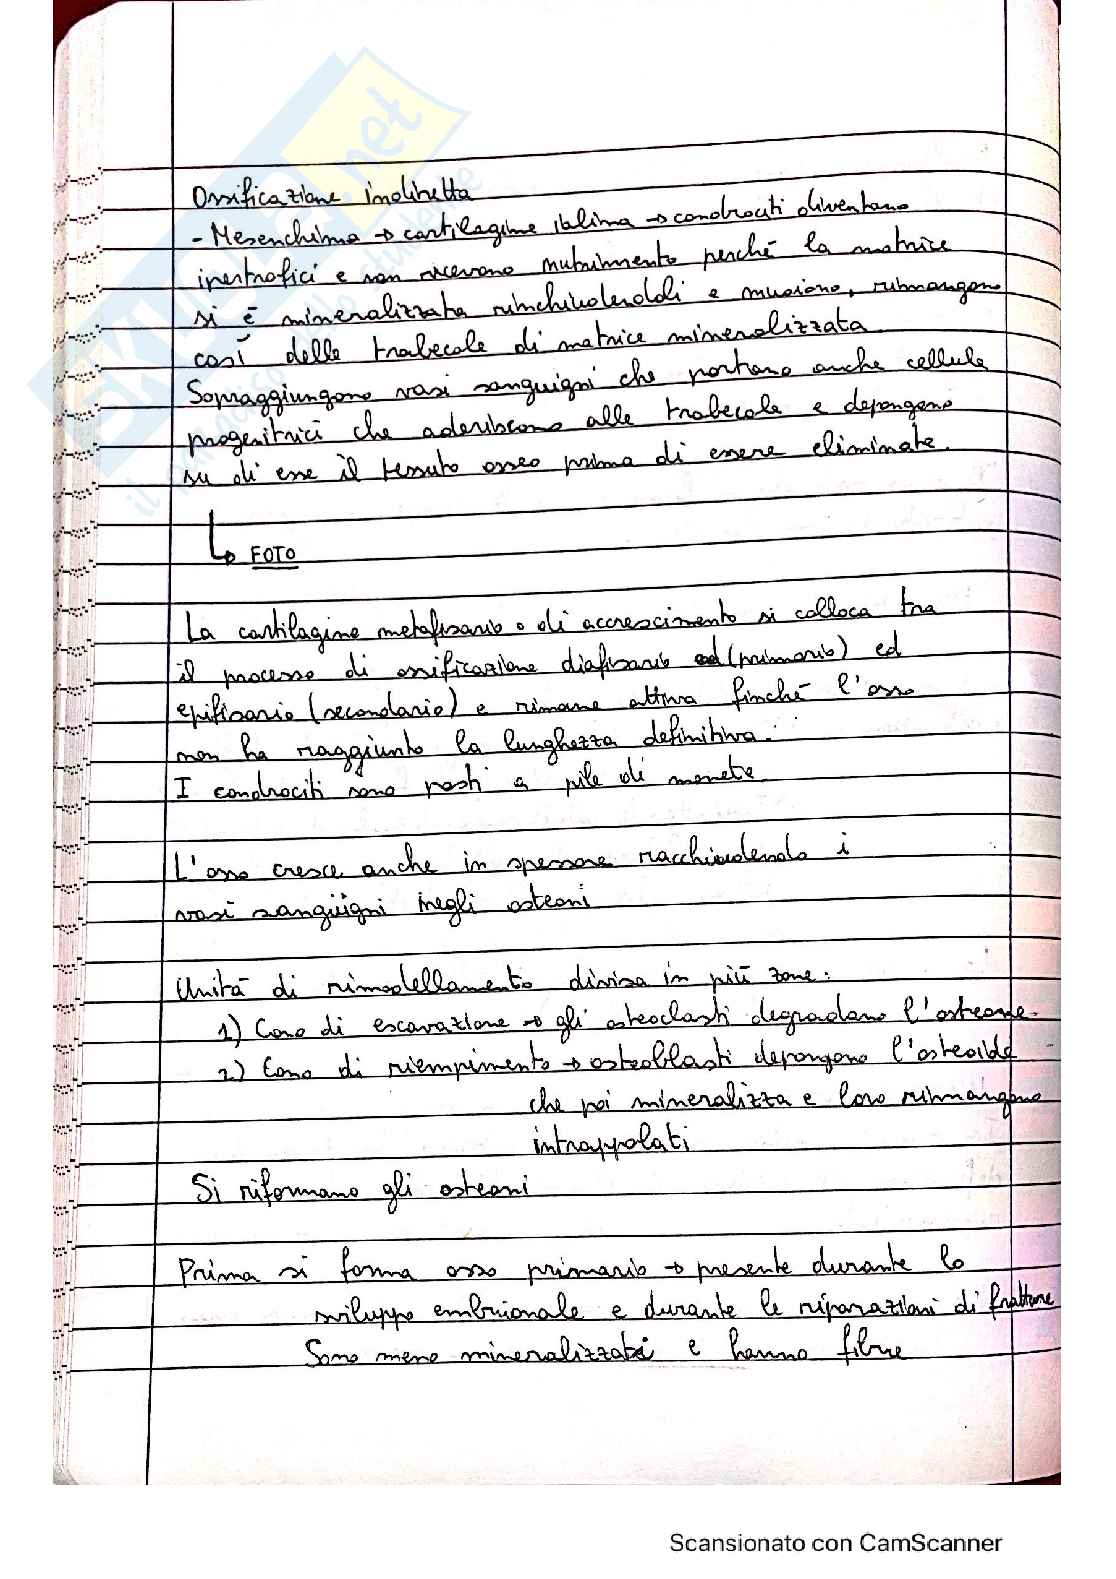 Ossificazione indiretta
- Mesenchima → cartilagine ialina → condrociti diventano
ipertrofici e non ricevono nutrimento perché la matrice
si è mineralizzata rinchiudendoli e muoiono, rimangono
così delle trabecole di matrice mineralizzata
Sopraggiungono vasi sanguigni che portano anche cellule
progenitrici che aderiscono alle trabecole e depongono
su di esse il tessuto osseo prima di essere eliminate.
↳ FOTO
La cartilagine metafisaria o di accrescimento si colloca tra
il processo di ossificazione diafisario (primario) ed
epifisario (secondario) e rimane attiva finché l'osso
non ha raggiunto la lunghezza definitiva.
I condrociti sono posti a pile di monete
L'osso cresce anche in spessore racchiudendo i
vasi sanguigni negli osteoni
Unità di rimodellamento divisa in più zone:
1) Cono di escavazione → gli osteoclasti degradano l'osteone.
2) Cono di riempimento → osteoblasti depongono l'osteoide
che poi mineralizza e loro rimangono
intrappolati
Si riformano gli osteoni
Prima si forma osso primario → presente durante lo
sviluppo embrionale e durante le riparazioni di fratture
Sono meno mineralizzati e hanno fibre
Scansionato con CamScanner